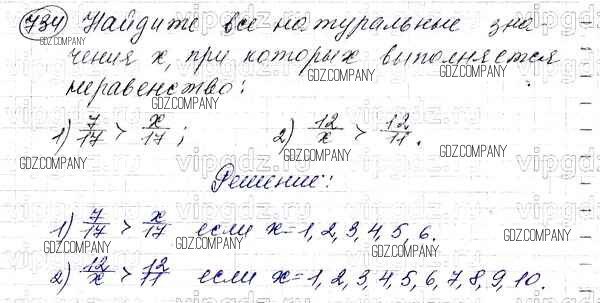 734 Найдите все натуральные зна
чения x, при которых выполняется
неравенство:
1) 7/17 > x/17; 2) 12/x > 12/11.
Решение:
1) 7/17 > x/17 если x=1,2,3,4,5,6.
2) 12/x > 12/11 если x=1,2,3,4,5,6,7,8,9,10.
GDZ.COMPANY
GDZ.COMPANY
GDZ.COMPANY
GDZ.COMPANY
GDZ.COMPANY
GDZ.COMPANY
GDZ.COMPANY
GDZ.COMPANY
GDZ.COMPANY
GDZ.COMPANY
GDZ.COMPANY
GDZ.COMPANY